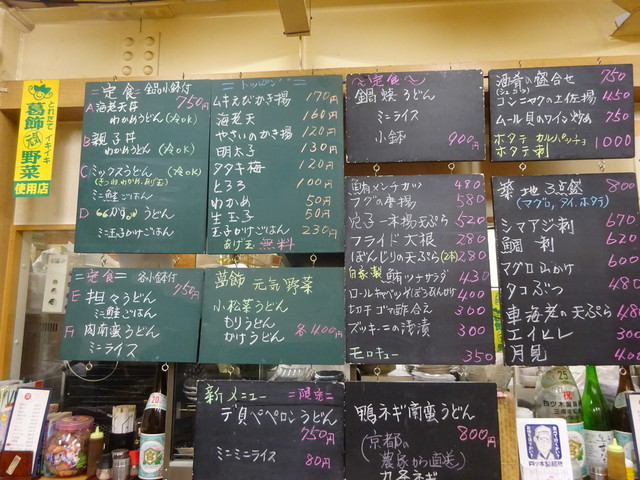 とれたて イキイキ
葛飾
野菜
使用店
=定食= 全品小鉢付
A 海老天丼 750円
わかめうどん (冷OK)
B 親子丼
わかめうどん (冷OK)
C ミックスうどん (冷OK)
(きつね、わかめ、あげ玉)
ミニ鮭ごはん
D うどん
ミニ玉子かけごはん
トッピング
ムキえびかき揚 170円
海老天 160円
やさいのかき揚 120円
明太子 130円
タタキ梅 120円
とろろ 100円
わかめ 50円
生玉子 50円
玉子かけごはん 230円
あげ玉 無料
定食
鍋焼うどん
ミニライス
小鉢 900円
酒肴の盛合せ 750
コンニャクの土佐揚 450
ムール貝のワイン炒め 750
ホタテ カルパッチョ
ホタテ刺 1000
鮪メンチカツ 480
フグの唐揚 580
穴子一本揚天ぷら 520
フライド大根 280
ぼんじりの天ぷら(2本) 280
自家製 鮪ツナサラダ 430
ロールキャベツ 400
切干コブの酢合え 300
ズッキーニの浅漬 300
モロキュー 350
築地3点盛 800
(マグロ,タイ,ホタテ)
シマアジ刺 670
鯛刺 620
マグロ山かけ 600
タコぶつ 480
車海老の天ぷら 480
エイヒレ 300
月見 400
=定食= 各小鉢付
E 担々うどん 750円
ミニ鮭ごはん
F 肉南蛮うどん
ミニライス
葛飾 元気野菜
小松菜うどん
もりうどん 各400円
かけうどん
新メニュー =限定=
ペペロンうどん
750円
ミニミニライス 80円
鴨ネギ南蛮うどん
800円
(京都の
農家から直送)
九条ネギ